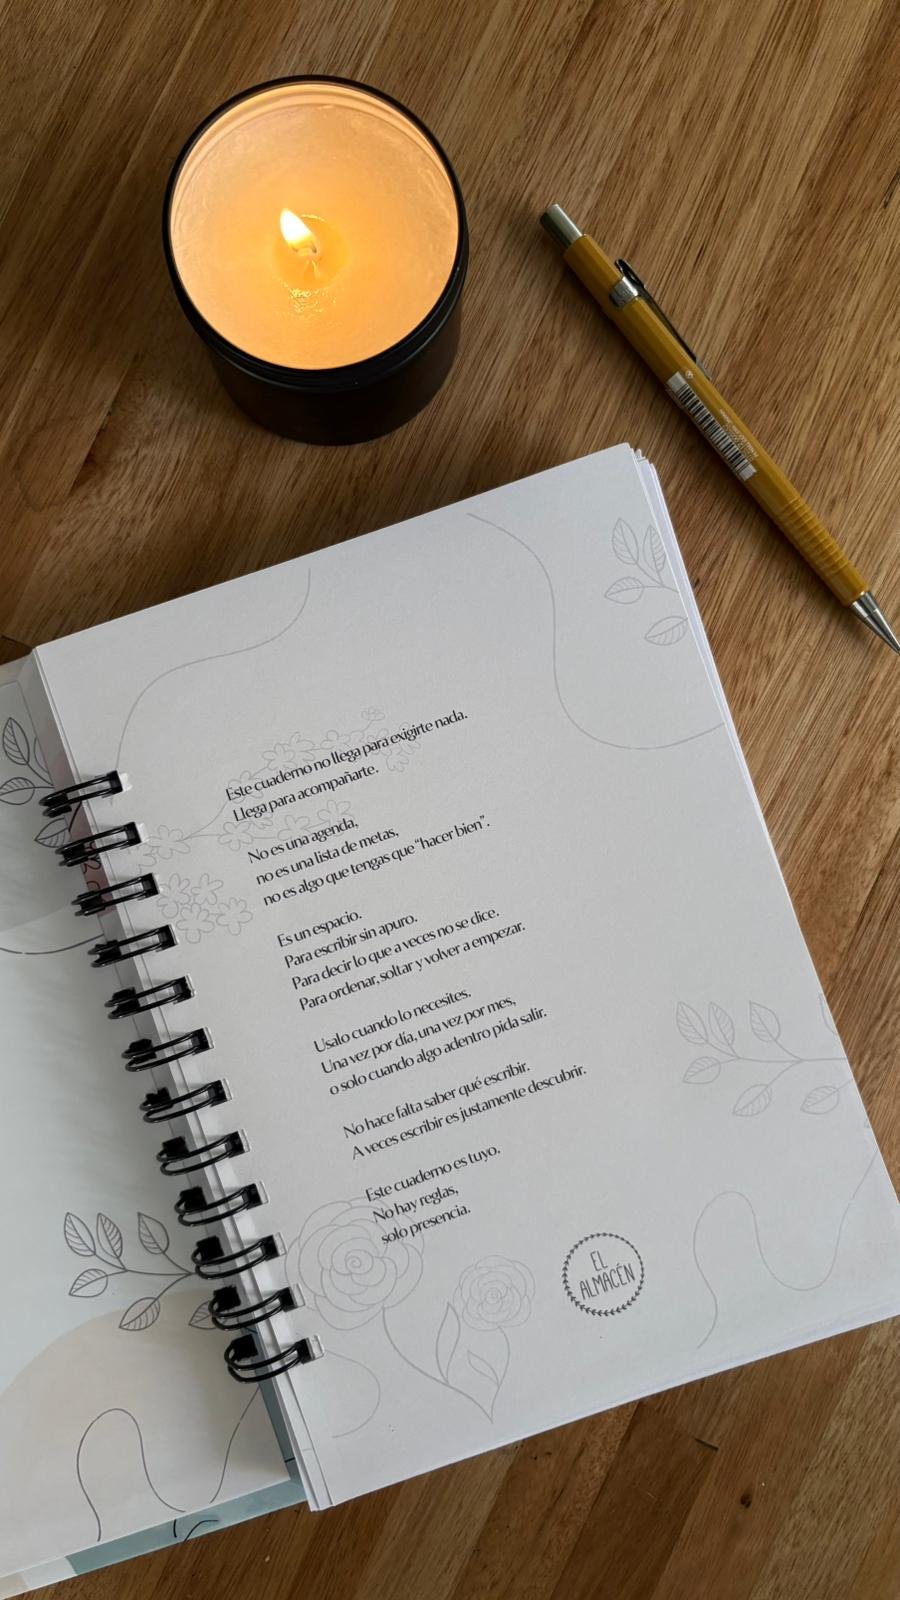 Este cuaderno no llega para exigirte nada.
Llega para acompañarte.
No es una agenda,
no es una lista de metas,
no es algo que tengas que “hacer bien”.
Es un espacio.
Para escribir sin apuro.
Para decir lo que a veces no se dice.
Para ordenar, soltar y volver a empezar.
Usalo cuando lo necesites.
Una vez por día, una vez por mes,
o solo cuando algo adentro pida salir.
No hace falta saber qué escribir.
A veces escribir es justamente descubrir.
Este cuaderno es tuyo.
No hay reglas,
solo presencia.
EL
ALMACÉN